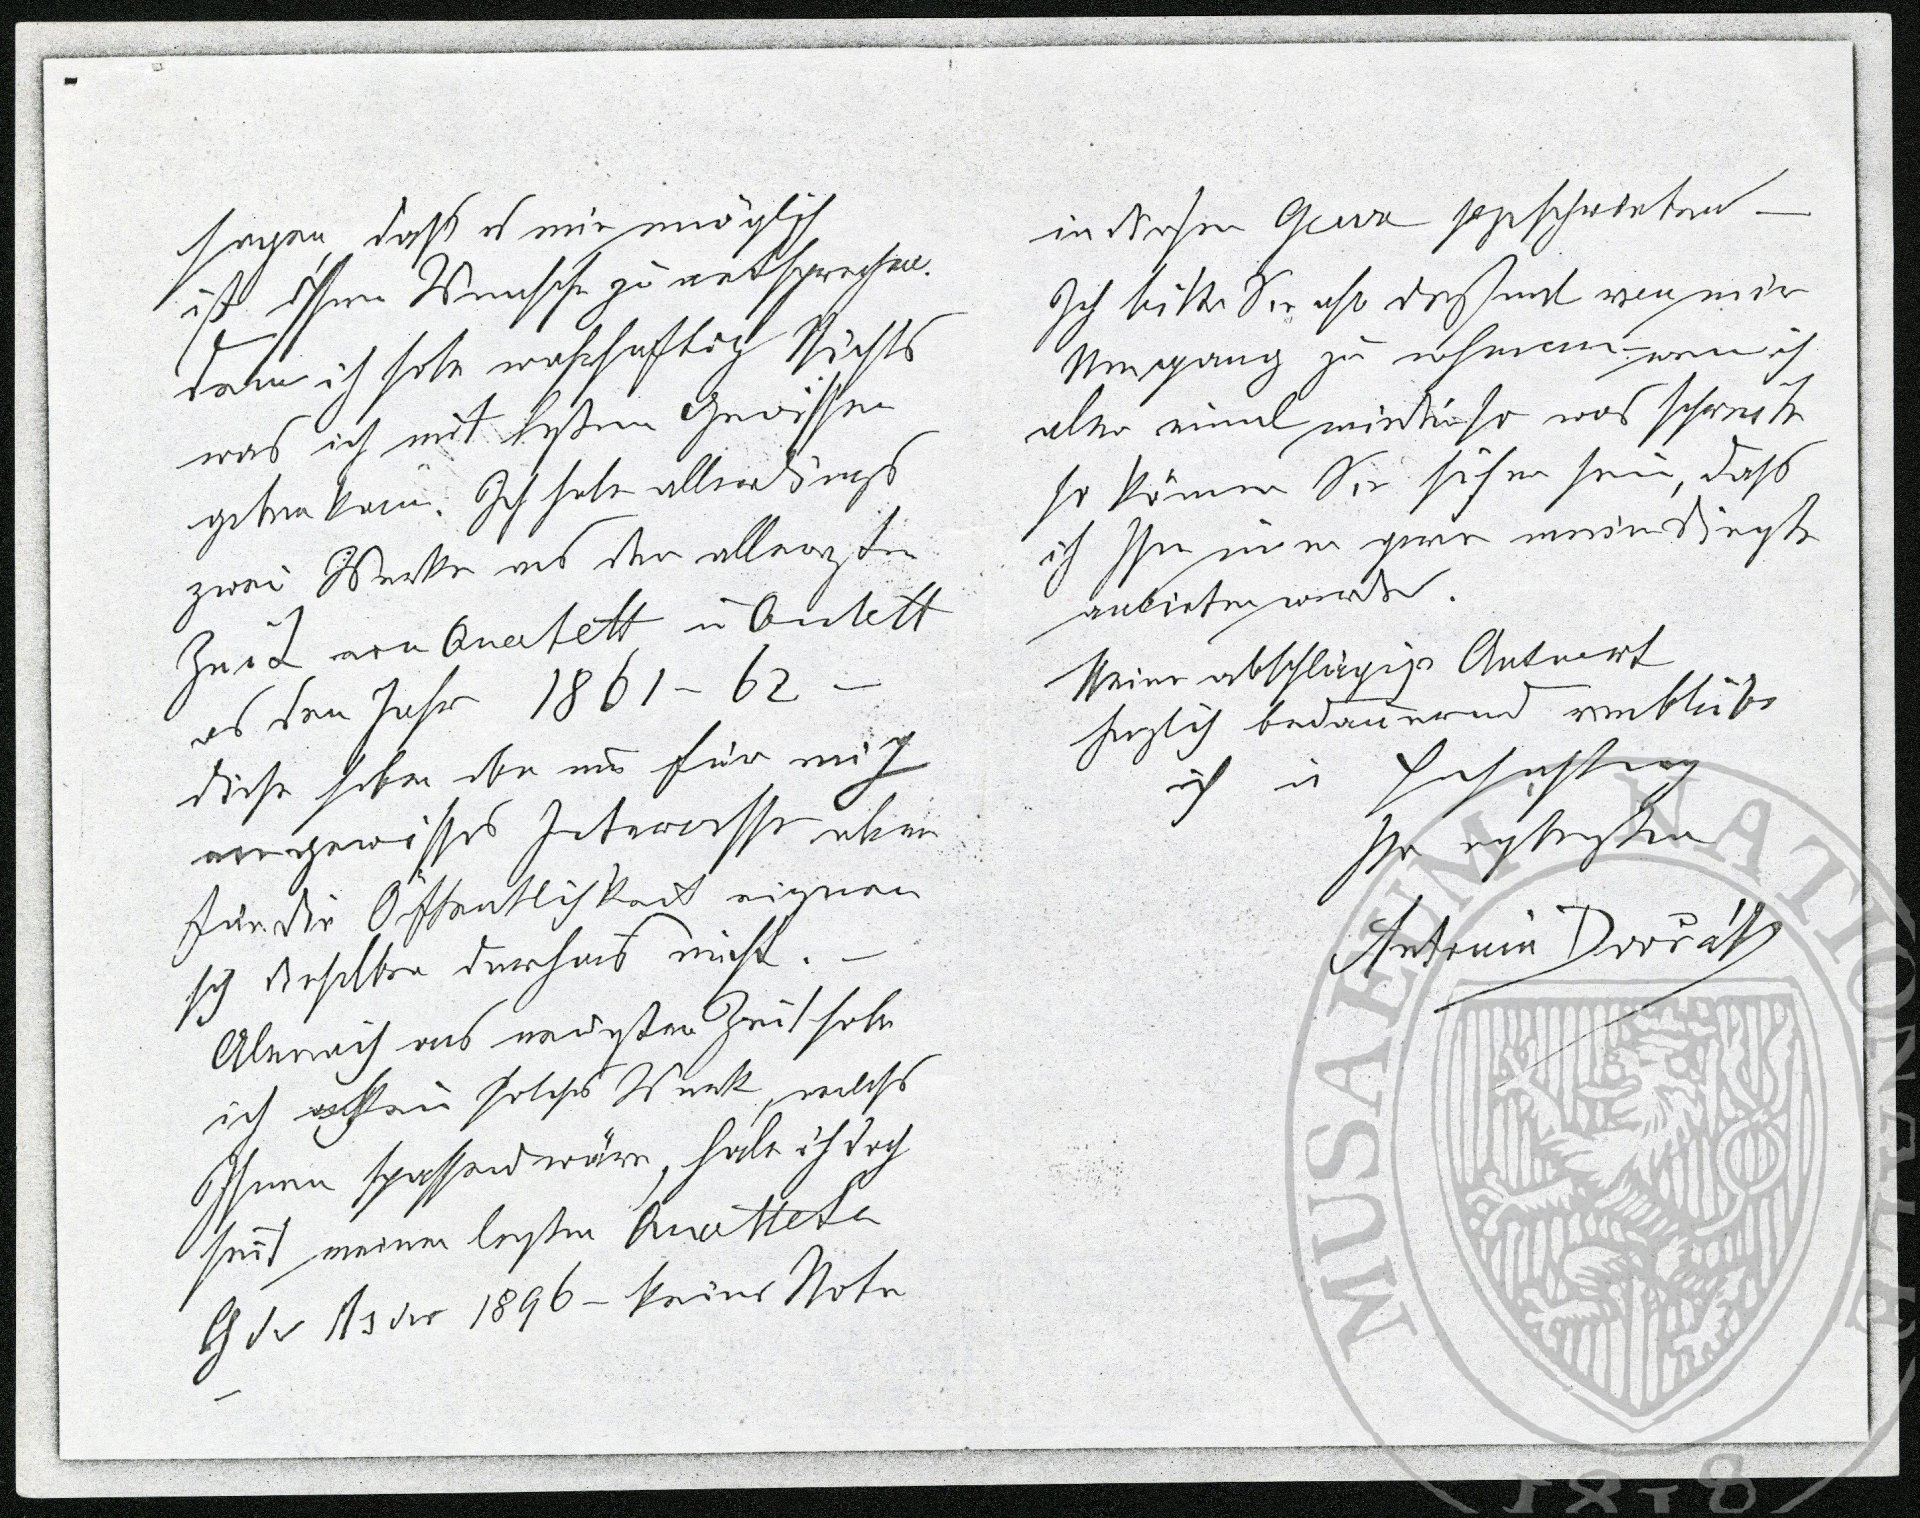 sagen, daß es mir unmöglich
ist Ihrem Wunsche zu entsprechen.
denn ich habe wahrhaftig Nichts
was ich mit bestem Gewissen
geben kann. Ich habe allerdings
zwei Werke aus der allerersten
Zeit ein Quartett u Quintett
aus dem Jahr 1861–62 –
diese haben aber nur für mich
ein gewisses Interesse aber
für die Öffentlichkeit eignen
sich dieselben durchaus nicht. –
Aber auch aus neuester Zeit habe
ich kein solches Werk, welches
Ihnen passend wäre, habe ich doch
seit meinen letzten Quartetten
G dur As dur 1896 – keine Note
–
in diesem Genre geschrieben –
Ich bitte Sie also diesmal von mir
Umgang zu nehmen – wenn ich
aber einmal wieder so was schreibe
so können Sie sicher sein, dass
ich Ihnen immer gerne meine Dienste
anbieten werde.
Meine abschlägige Antwort
herzlich bedauernd verbleibe
ich in Hochachtung
Ihr ergebenster
Antonín Dvořák
MUSAEUM NATIONALE
1818